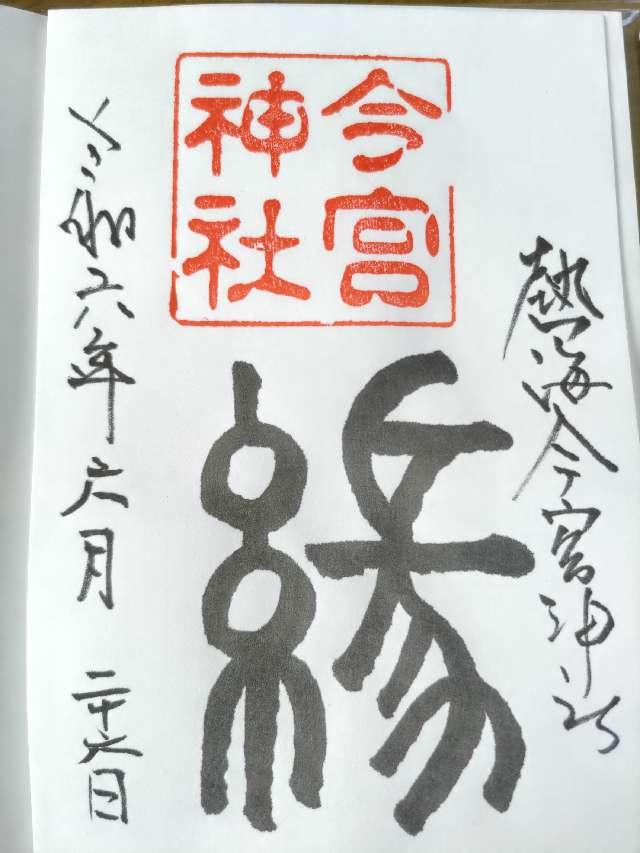 熱海今宮神社
今宮
神社
縁
令和六年六月二十六日